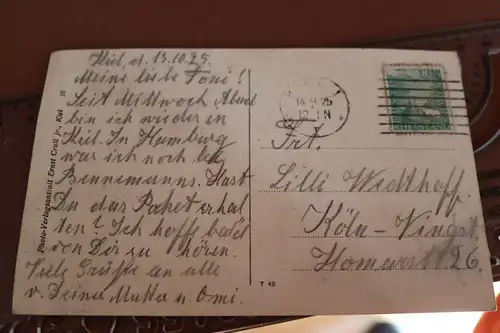 Kiel, d. 13.10.25.
Meine liebe Toni!
Seit Mittwoch Abend
bin ich wieder in
Kiel. In Hamburg
war ich noch bei
Bennemanns. Hast
Du das Paket erhal
ten? Ich hoffe bald
von Dir zu hören.
Viele Grüße an alle
v. Deiner Mutter u. Omi.
Photo-Verlagsanstalt Ernst Crull jr., Kiel
16
T 43
25
12 - 1 N
Frl.
Lilli Wedthoff.
Köln-Vingst
Homarstr 26.